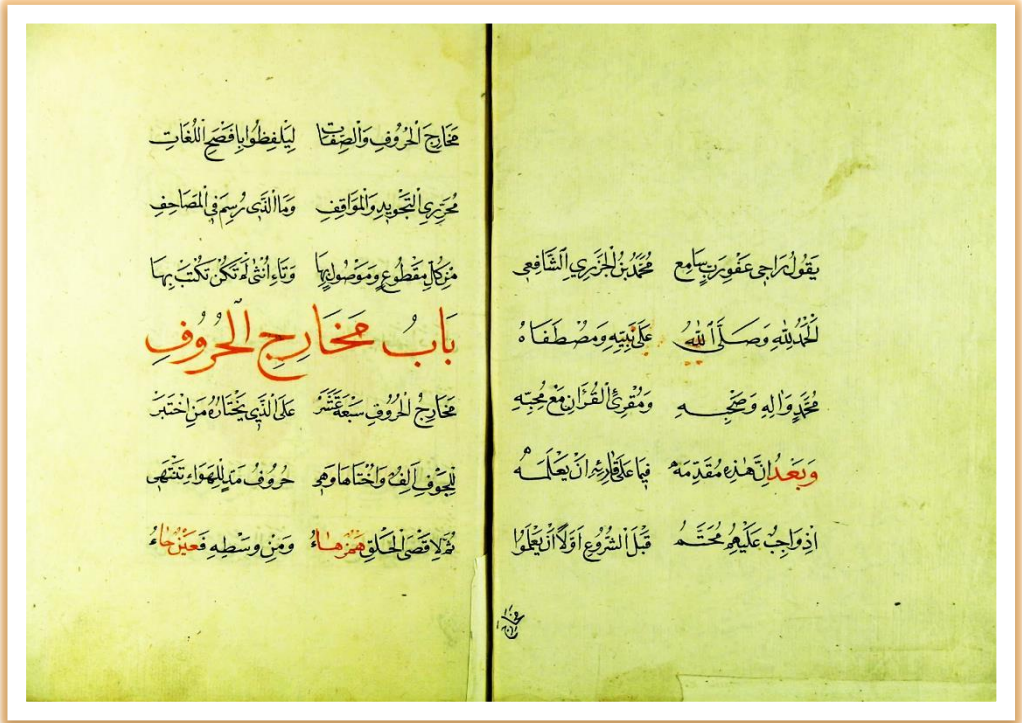 يَقُولُ رَاجِى عَفْوِ رَبٍّ سَامِعِ مُحَمَّدُ بْنُ الْجَزَرِيِ الشَّافِعِى
اَلْحَمْدُ لِلّٰهِ وَصَلَّى اللّٰهُ عَلٰى نَبِيِّهِ وَمُصْطَفَاهُ
مُحَمَّدٍ وَاٰلِهِ وَصَحْبِهِ وَمُقْرِئِ الْقُرْاٰنِ مَعْ مُحِبِّهِ
وَبَعْدُ اِنَّ هٰذِهِ مُقَدِّمَهْ فِيمَا عَلٰى قَارِئِهِ اَنْ يَعْلَمَهْ
اِذْ وَاجِبٌ عَلَيْهِمُ مُحَتَّمُ قَبْلَ الشُّرُوعِ اَوَّلًا اَنْ يَعْلَمُوا
مخارج
مَخَارِجَ الْحُرُوفِ وَالصِّفَاتِ لِيَلْفِظُوا بِاَفْصَحِ اللُّغَاتِ
مُحَرِّرِي التَّجْوِيدِ وَالْمَوَاقِفِ وَمَا الَّذِى رُسِمَ فِى الْمَصَاحِفِ
مِنْ كُلِّ مَقْطُوعٍ وَمَوْصُولٍ بِهَا وَتَاءِ اُنْثٰى لَمْ تَكُنْ تُكْتَبْ بِهَا
بَابُ مَخَارِجِ الْحُرُوفِ
مَخَارِجُ الْحُرُوفِ سَبْعَةَ عَشَرْ عَلَى الَّذِي يَخْتَارُهُ مَنِ اخْتَبَرْ
لِلْجَوْفِ اَلِفٌ وَاُخْتَاهَا وَهِىَ حُرُوفُ مَدٍّ لِلْهَوَاءِ تَنْتَهِى
ثُمَّ لِاَقْصَى الْحَلْقِ هَمْزٌ هَاءُ وَمِنْ وَسْطِهِ فَعَيْنٌ حَاءُ